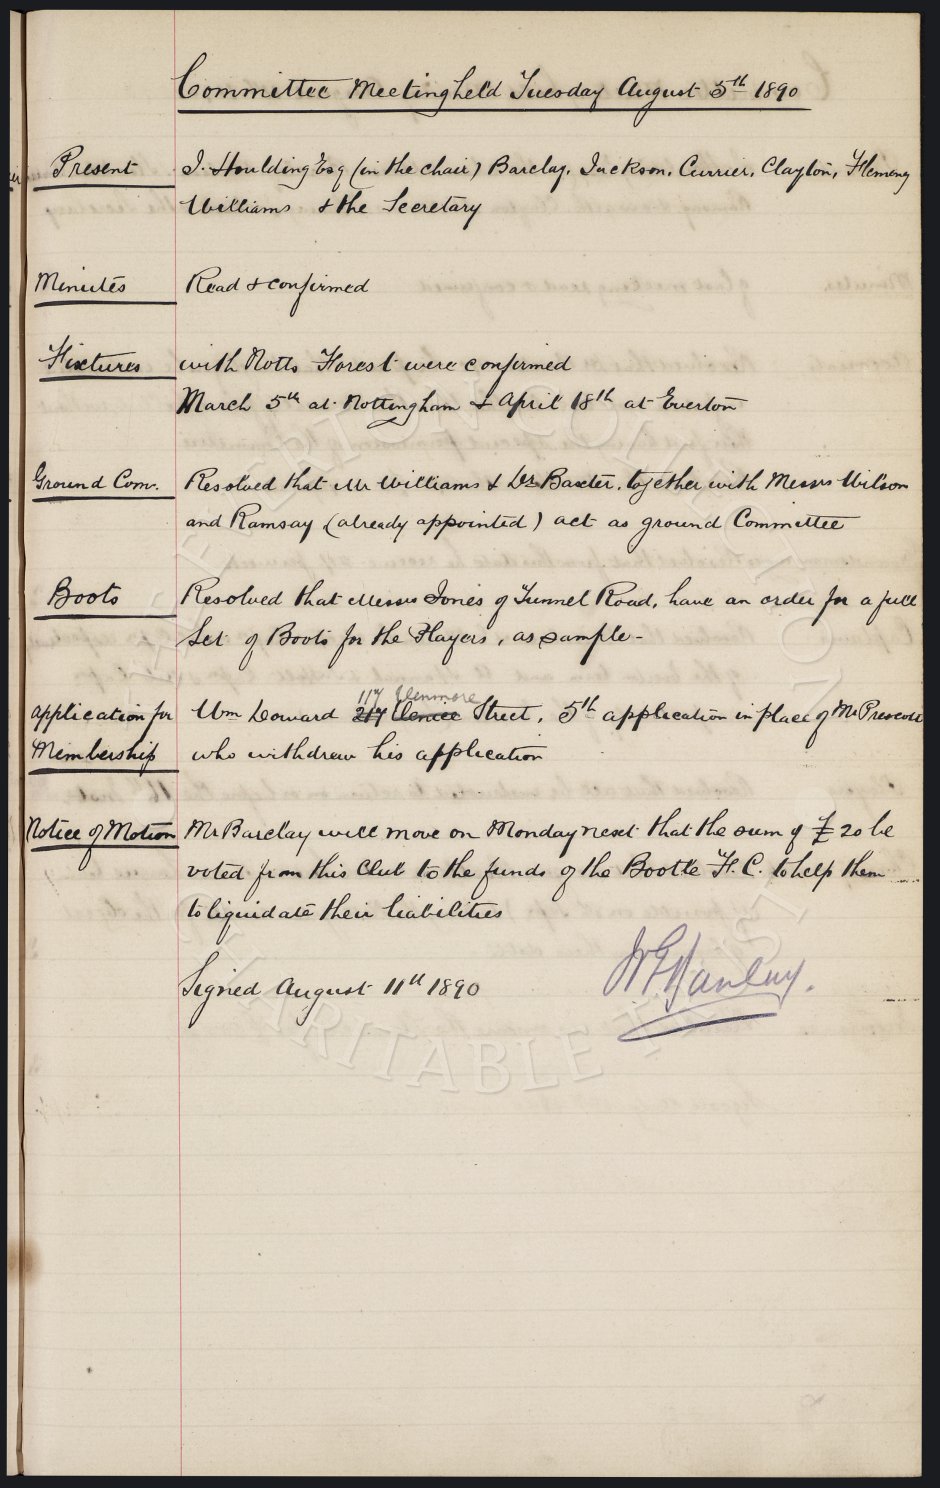 Committee Meeting held Tuesday August 5th 1890
Present J. Houlding Esq (in the chair) Barclay, Jackson, Currier, Clayton, Flemeng
Williams & the Secretary
Minutes Read & confirmed
Fixtures with Notts Forest were confirmed
March 5th at Nottingham & April 18th at Everton
Ground Com. Resolved that Mr Williams & Dr Baxter, together with Messrs Wilson
and Ramsay (already appointed) act as ground Committee
Boots Resolved that Messrs Jones of Tunnel Road, have an order for a full
Set of Boots for the Players, as sample -
117 Venmore
Application for Wm Howard 217 Venice Street, 5th application in place of Mr Prescott
Membership who withdrew his application
Notice of Motion Mr Barclay will move on Monday next that the sum of £20 be
voted from this Club to the funds of the Bootle F.C. to help them
to liquidate their liabilities
Signed August 11th 1890
CHARITABLE TRUST